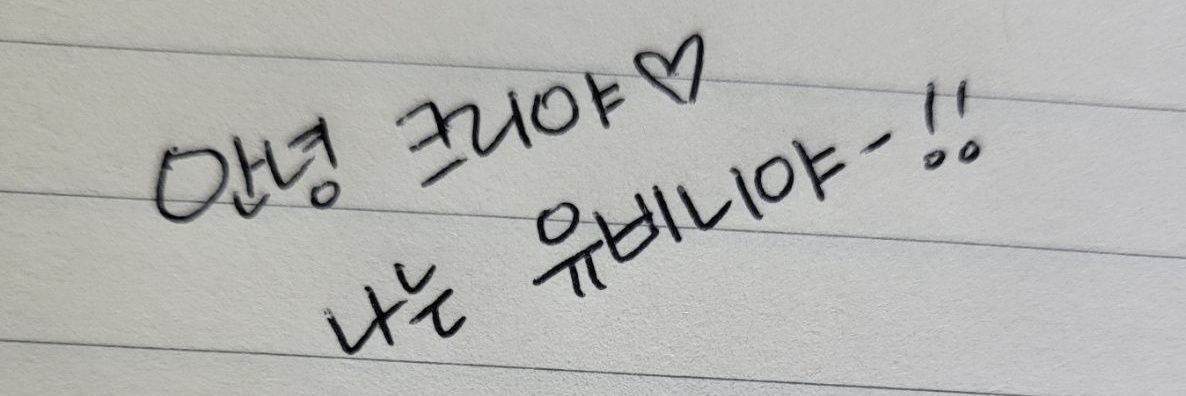 안녕 크리야♡
나는 유비니야-!!